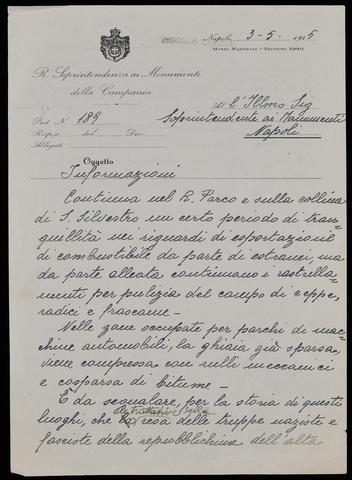 Napoli, 3-5-1945
Museo Nazionale - Telefono 52001
R. Soprintendenza ai Monumenti
della Campania
Al l'Illmo Sig
Soprintendente ai Monumenti
Napoli
Prot. N. 189
Risp. a del Div.
Allegati
Oggetto
Informazioni
Continua nel R. Parco e sulla collina
di S. Silvestro un certo periodo di tran
quillità nei riguardi di esportazioni
di combustibile da parte di estranei, ma
da parte alleata continuano i rastrella
menti per pulizia del campo di ceppe,
radici e frascame.
Nelle zone occupate per parchi di mac
chine automobili, la ghiaia già sparsa,
viene compressa con rulli meccanici
e cosparsa di bitume -
È da segnalare, per la storia di questi
luoghi, che la resa delle truppe naziste e
fasciste della repubblichina dell'alta